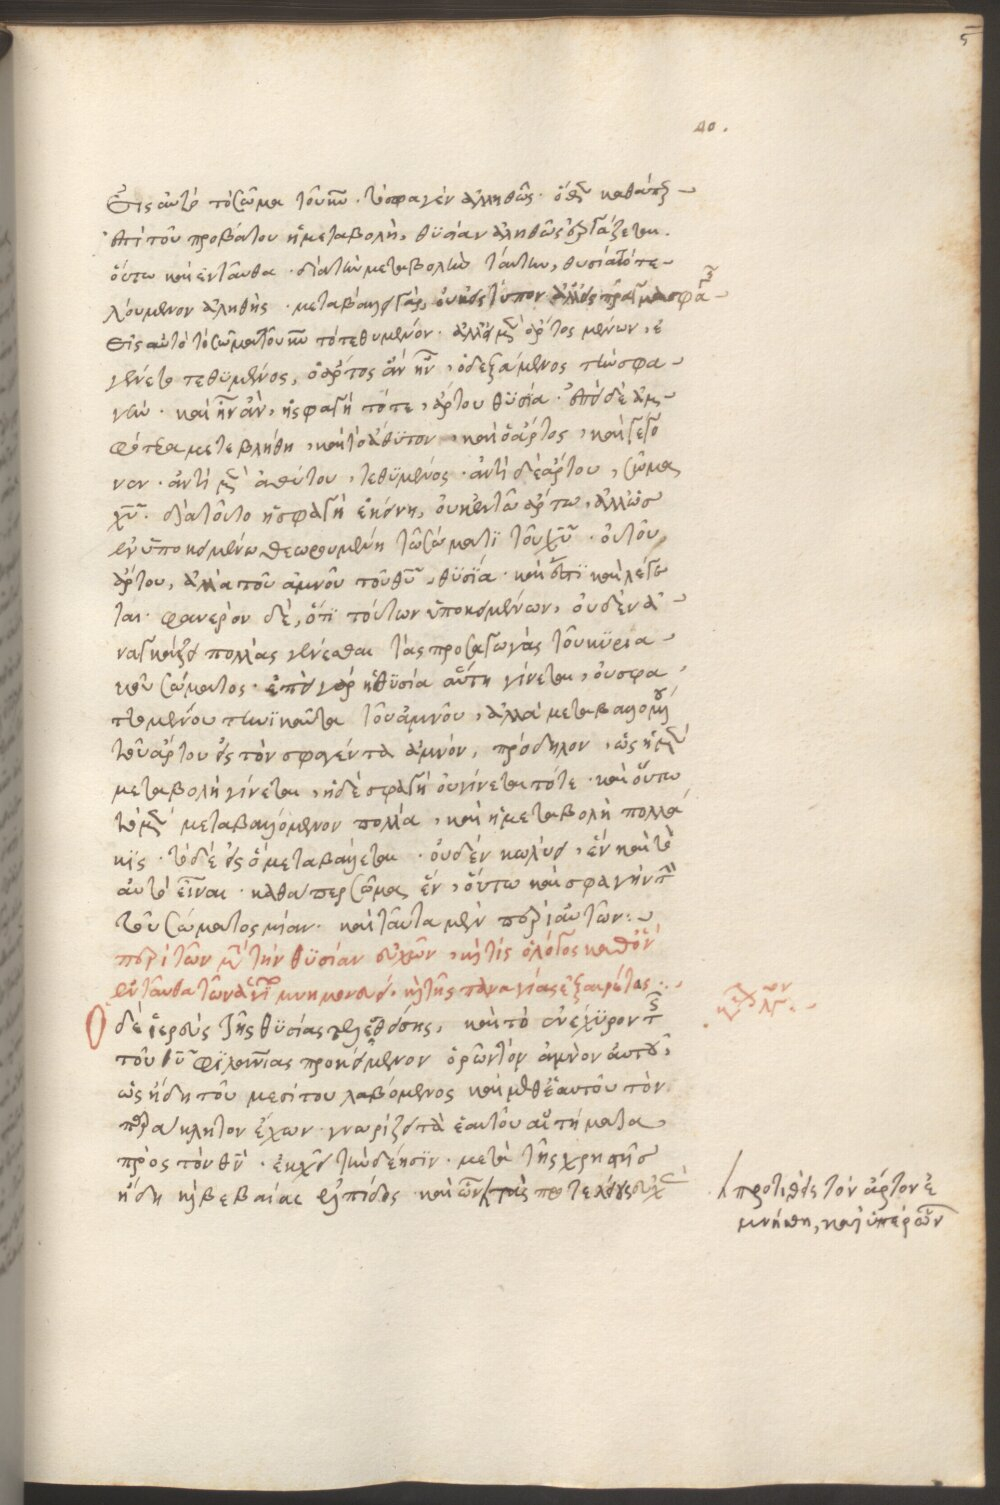 5
40.
εἰς αὐτὸ τὸ σῶμα τοῦ κυ· τὸ σφαγὲν ἀληθῶς· ὅθεν καθάπερ
ἐπὶ τοῦ προβάτου ἡ μεταβολὴ, θυσίαν ἀληθῶς ἐργάζεται·
οὕτω καὶ ἐνταῦθα· διὰ τὴν μεταβολὴν ταύτην, θυσία τὸ τε
λούμενον ἀληθής· μεταβάλλει γὰρ, οὐκ εἰς τύπον ἀλλ' εἰς πρᾶγμα σφαγῆς
εἰς αὐτὸ τὸ σῶμα τοῦ κυ τὸ τεθυμένον· ἀλλ' εἰ μὲν ἄρτος μένων, ἐ
γένετο τεθυμένος, ὁ ἄρτος ἂν ἦν, ὁ δεξάμενος τὴν σφα
γήν· καὶ ἦν ἂν, ἡ σφαγὴ τότε, ἄρτου θυσία· ἐπεὶ δὲ ἀμ
φότερα μετεβλήθη, καὶ τὸ ἄθυτον, καὶ ὁ ἄρτος, καὶ γέγο
νεν· ἀντὶ μὲν ἀθύτου, τεθυμένος· ἀντὶ δὲ ἄρτου, σῶμα
χυ· διὰ τοῦτο ἡ σφαγὴ ἐκείνη, οὐκ ἐν τῶ ἄρτω, ἀλλ' ὡς
ἐν ὑποκειμένω θεωρουμένη τῶ σώματι τοῦ χυ· οὐ τοῦ
ἄρτου, ἀλλὰ τοῦ ἀμνοῦ τοῦ θυ, θυσία· καὶ ἔστι καὶ λέγε
ται· φανερὸν δὲ, ὅτι τούτων ὑποκειμένων, οὐδὲν ἀ
ναγκάζει πολλὰς γενέσθαι τὰς προσαγωγὰς τοῦ κυρια
κοῦ σώματος· ἐπεὶ γὰρ ἡ θυσία αὕτη γίνεται, οὐ σφα
ττομένου τηνικαῦτα τοῦ ἀμνοῦ, ἀλλὰ μεταβαλλομένου
τοῦ ἄρτου εἰς τὸν σφαγέντα ἀμνόν, πρόδηλον, ὡς ἡ μὲν
μεταβολὴ γίνεται, ἡ δὲ σφαγὴ οὐ γίνεται τότε· καὶ οὕτω
τὸ μὲν μεταβαλλόμενον πολλὰ, καὶ ἡ μεταβολὴ πολλά
κις· τὸ δὲ εἰς ὃ μεταβάλλεται· οὐδὲν κωλύει, ἓν καὶ τὸ
αὐτὸ εἶναι· καθάπερ σῶμα ἓν, οὕτω καὶ σφαγὴν τὴν
τοῦ σώματος μίαν· καὶ ταῦτα μὲν περὶ αὐτῶν:
περὶ τῶν μετὰ τὴν θυσίαν εὐχῶν, κ τίς ὁ λόγος καθ' ὃν
ἐνταῦθα τῶν ἁγίων μνημονεύει, κ τῆς παναγίας ἐξαιρέτως:
ὁ δὲ ἱερεὺς τῆς θυσίας τελεσθείσης, καὶ τὸ ἐνέχυρον τῆς
τοῦ θυ φιλανίας προκείμενον ὁρῶν τὸν ἀμνὸν αὐτοῦ,
ὡς ἤδη τοῦ μεσίτου λαβόμενος καὶ μεθ' ἑαυτοῦ τὸν
παράκλητον ἔχων· γνωρίζει τὰ ἑαυτοῦ αἰτήματα,
πρὸς τὸν θν· ἐκχεῖ τὴν δέησιν· μετὰ τῆς χρηστῆς
ἤδη κ βεβαίας ἐλπίδος· καὶ ὧν τὰς πρὸ τελέσεως εὐχὰς
προτιθεὶς τὸν ἄρτον ἐ
μνήσθη, καὶ ὑπὲρ ὧν